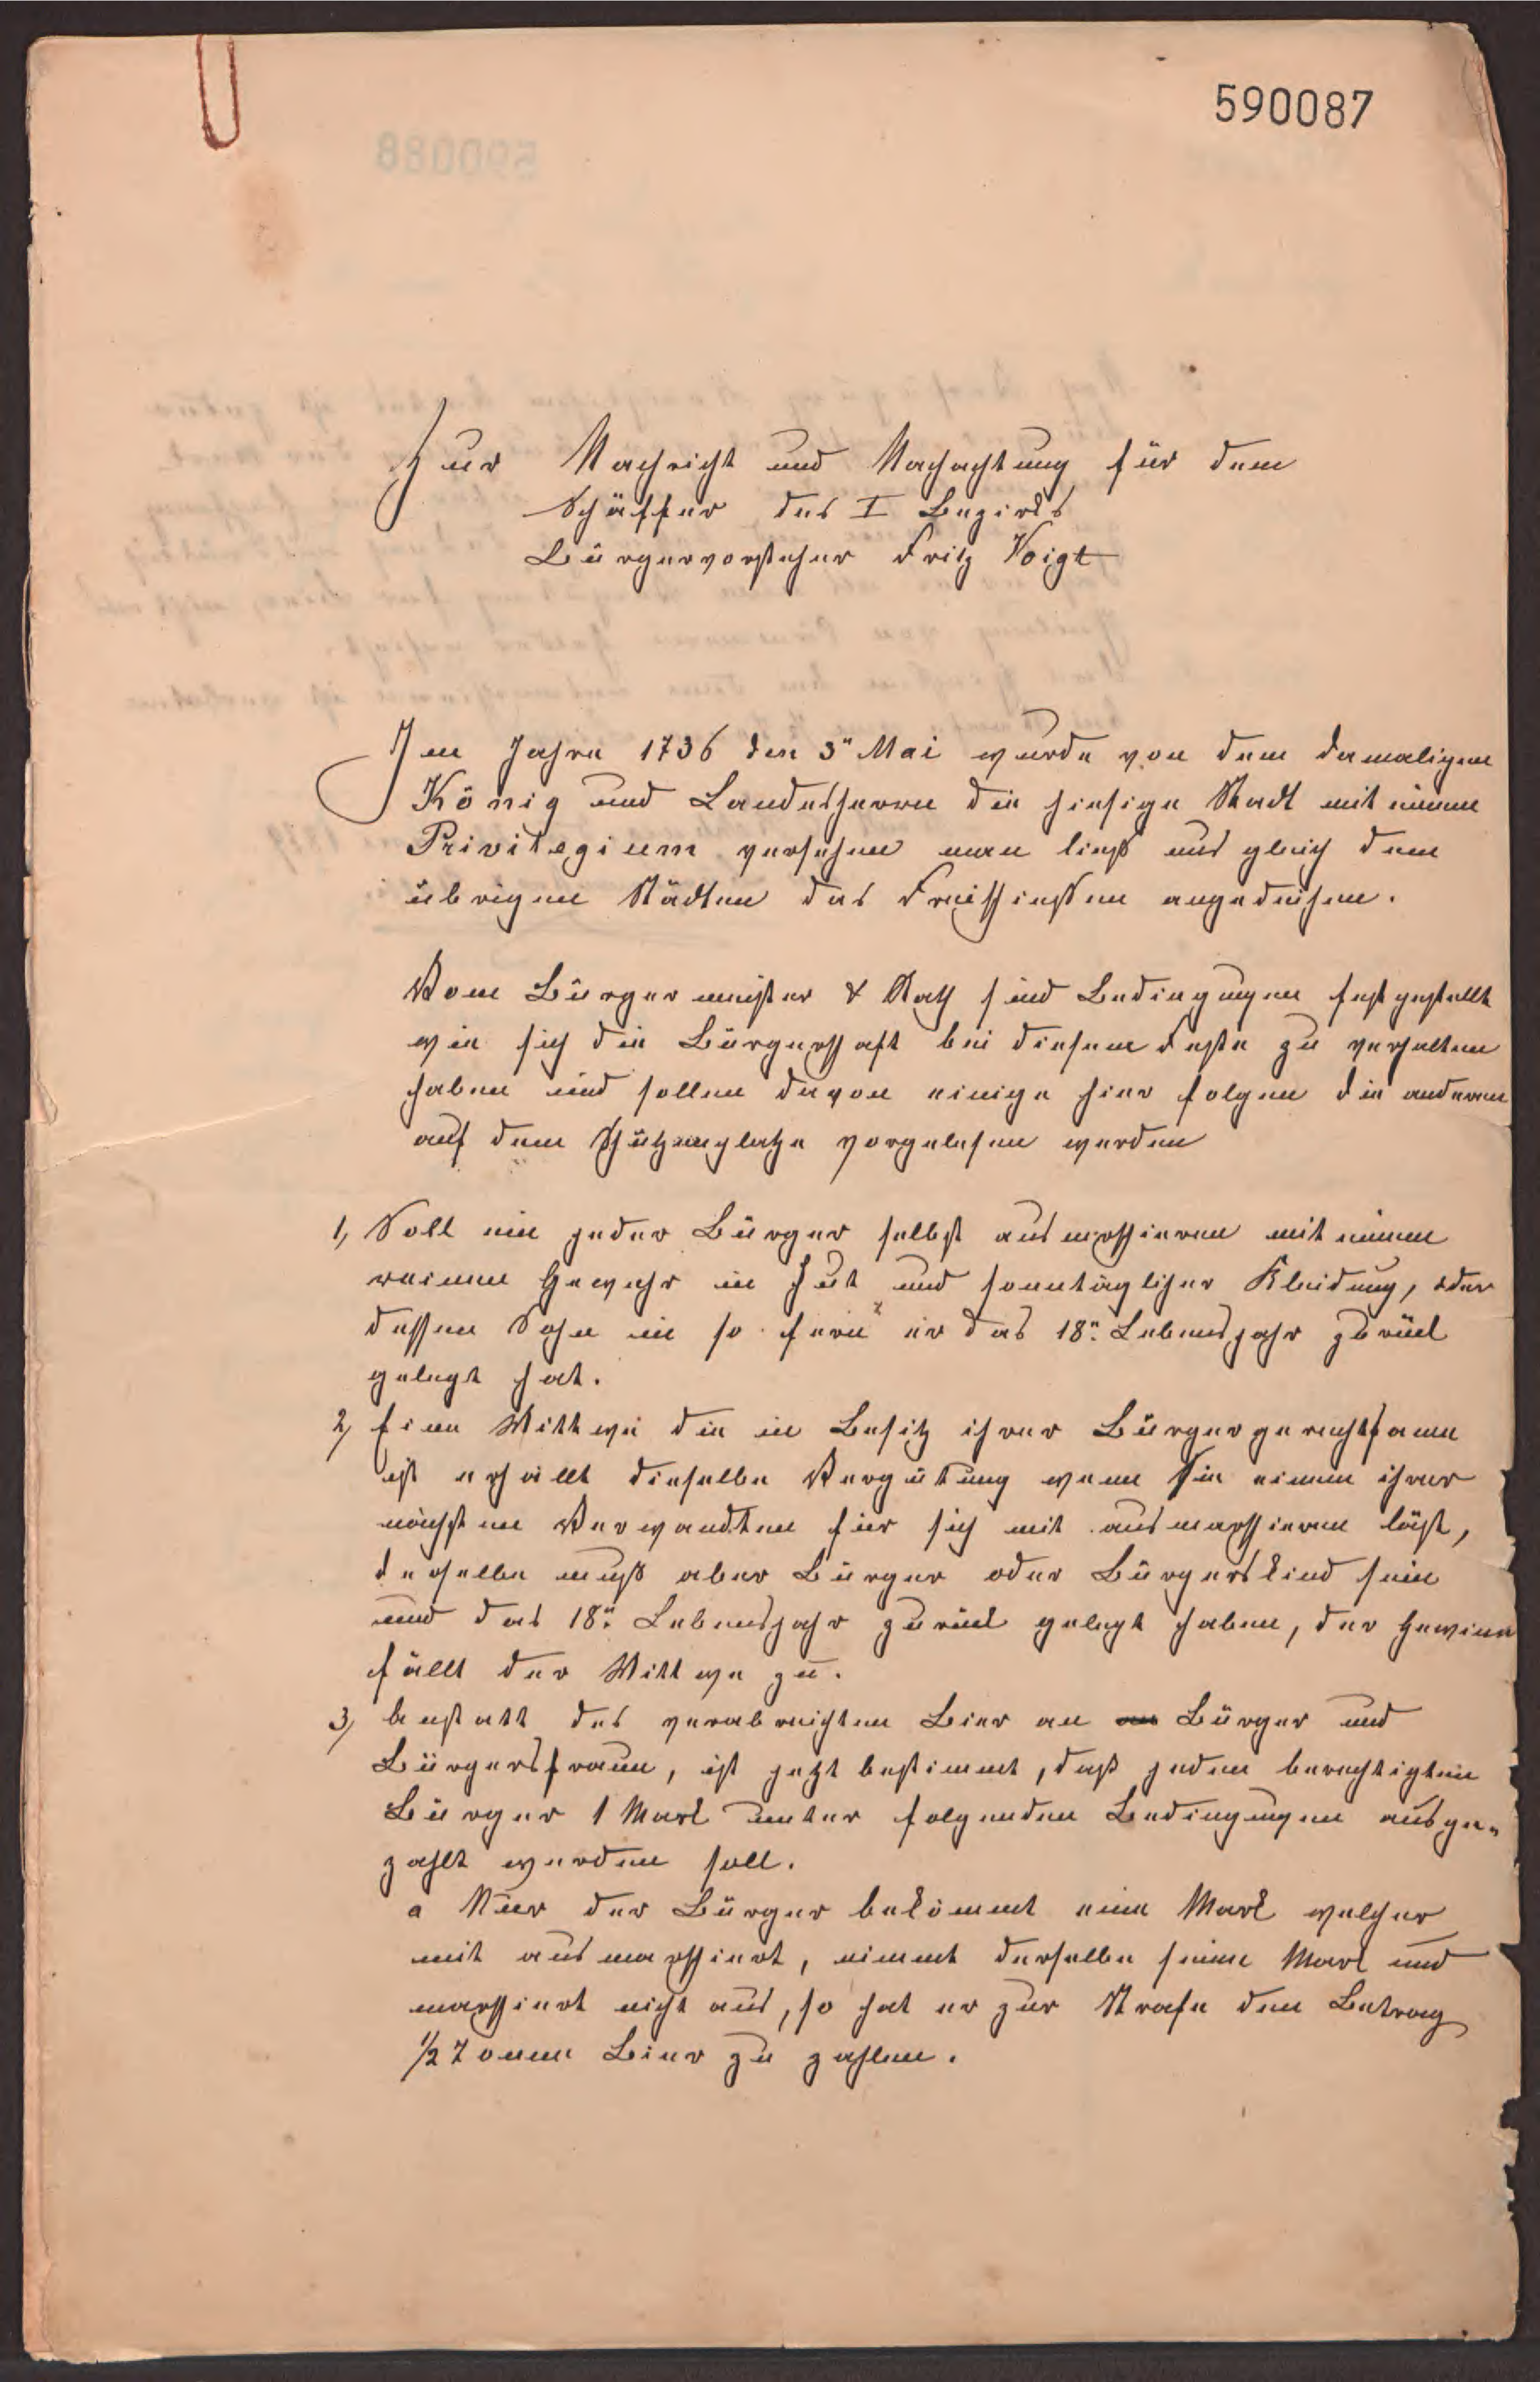 590087
Zur Nachricht und Nachachtung für dem
Schäffer des I Bezirks
Bürgervorsteher Fritz Voigt
Im Jahre 1736 den 3ⁿ Mai wurde von dem damaligen
König und Landesherrn die hiesige Stadt mit einem
Privilegium versehen man ließ uns gleich dem
übrigen Städten das Freischießen angedeihen.
Vom Bürgermeister & Rath sind Bedingungen festgestellt
wie sich die Bürgerschaft bei diesem Feste zu verhalten
haben und sollen davon einige hier folgen die anderen
auf dem Schützenplatze vorgelesen werden
1, Soll ein jeder Bürger selbst ausmarschieren mit einem
reinen Gewehr in Hut und sonntäglicher Kleidung, oder
dessen Sohn in so fern er das 18ⁿ Lebensjahr zurück
gelegt hat.
2, Eine Wittwe die in Besitz ihrer Bürgergerechtsame
ist erhällt dieselbe Vergütung wenn Sie einem ihrer
nächsten Verwandten für sich mit ausmarschieren läßt,
derselbe muß aber Bürger oder Bürgerskind sein
und das 18ⁿ Lebensjahr zurück gelegt haben, der Gewinn
fällt der Wittwe zu.
3, anstatt des verabreichten Bier an an Bürger und
Bürgersfrauen, ist jetzt bestimmt, daß jedem berechtigten
Bürger 1 Mark unter folgenden Bedingungen ausge-
zahlt werden soll.
a Nur der Bürger bekömmt eine Mark welcher
mit ausmarschiert, nimmt derselbe seine Mark und
marschiert nicht aus, so hat er zur Strafe dem Betrag
1/2 Tonne Bier zu zahlen.